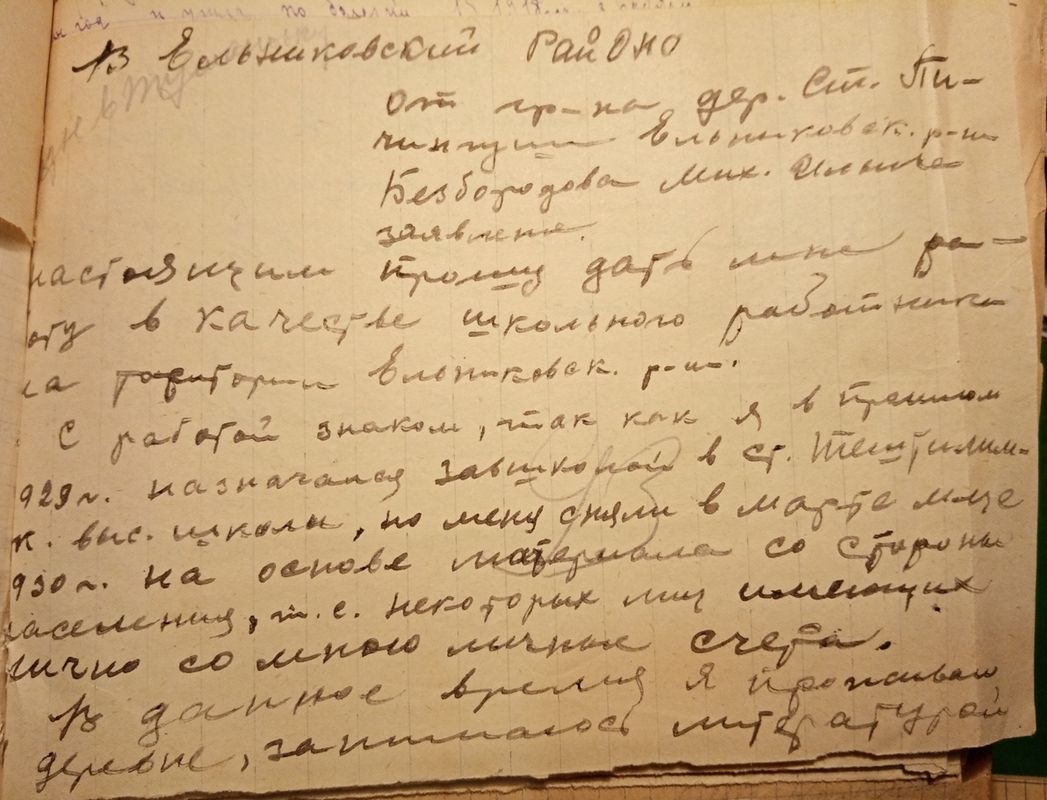 В Ельниковский РайОНО
От гр-на дер. Ст. Пи-
чингуши Ельниковск. р-на
Безбородова Мих. Ильича
заявление.
настоящим прошу дать мне ра-
оту в качестве школьного работника
на территории Ельниковск. р-на.
С работой знаком, так как я в прошлом
929 г. назначался завшколой в ст. Тештилим-
к. выс. школы, но меня сняли в марте м-це
930 г. на основе материала со стороны
населения, т.е. некоторых лиц имеющих
лично со мною личные счета.
В данное время я проживаю
деревне, занимаюсь литературой